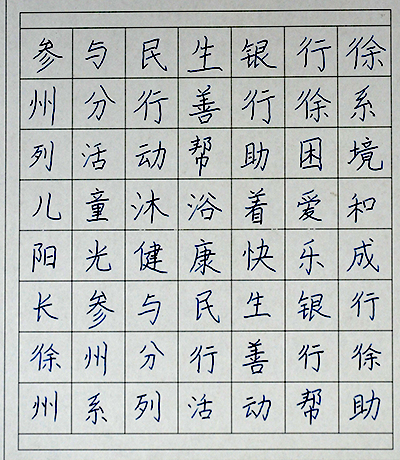 参与民生银行徐
州分行善行徐系
列活动帮助困境
儿童沐浴着爱和
阳光健康快乐成
长参与民生银行
徐州分行善行徐
州系列活动帮助